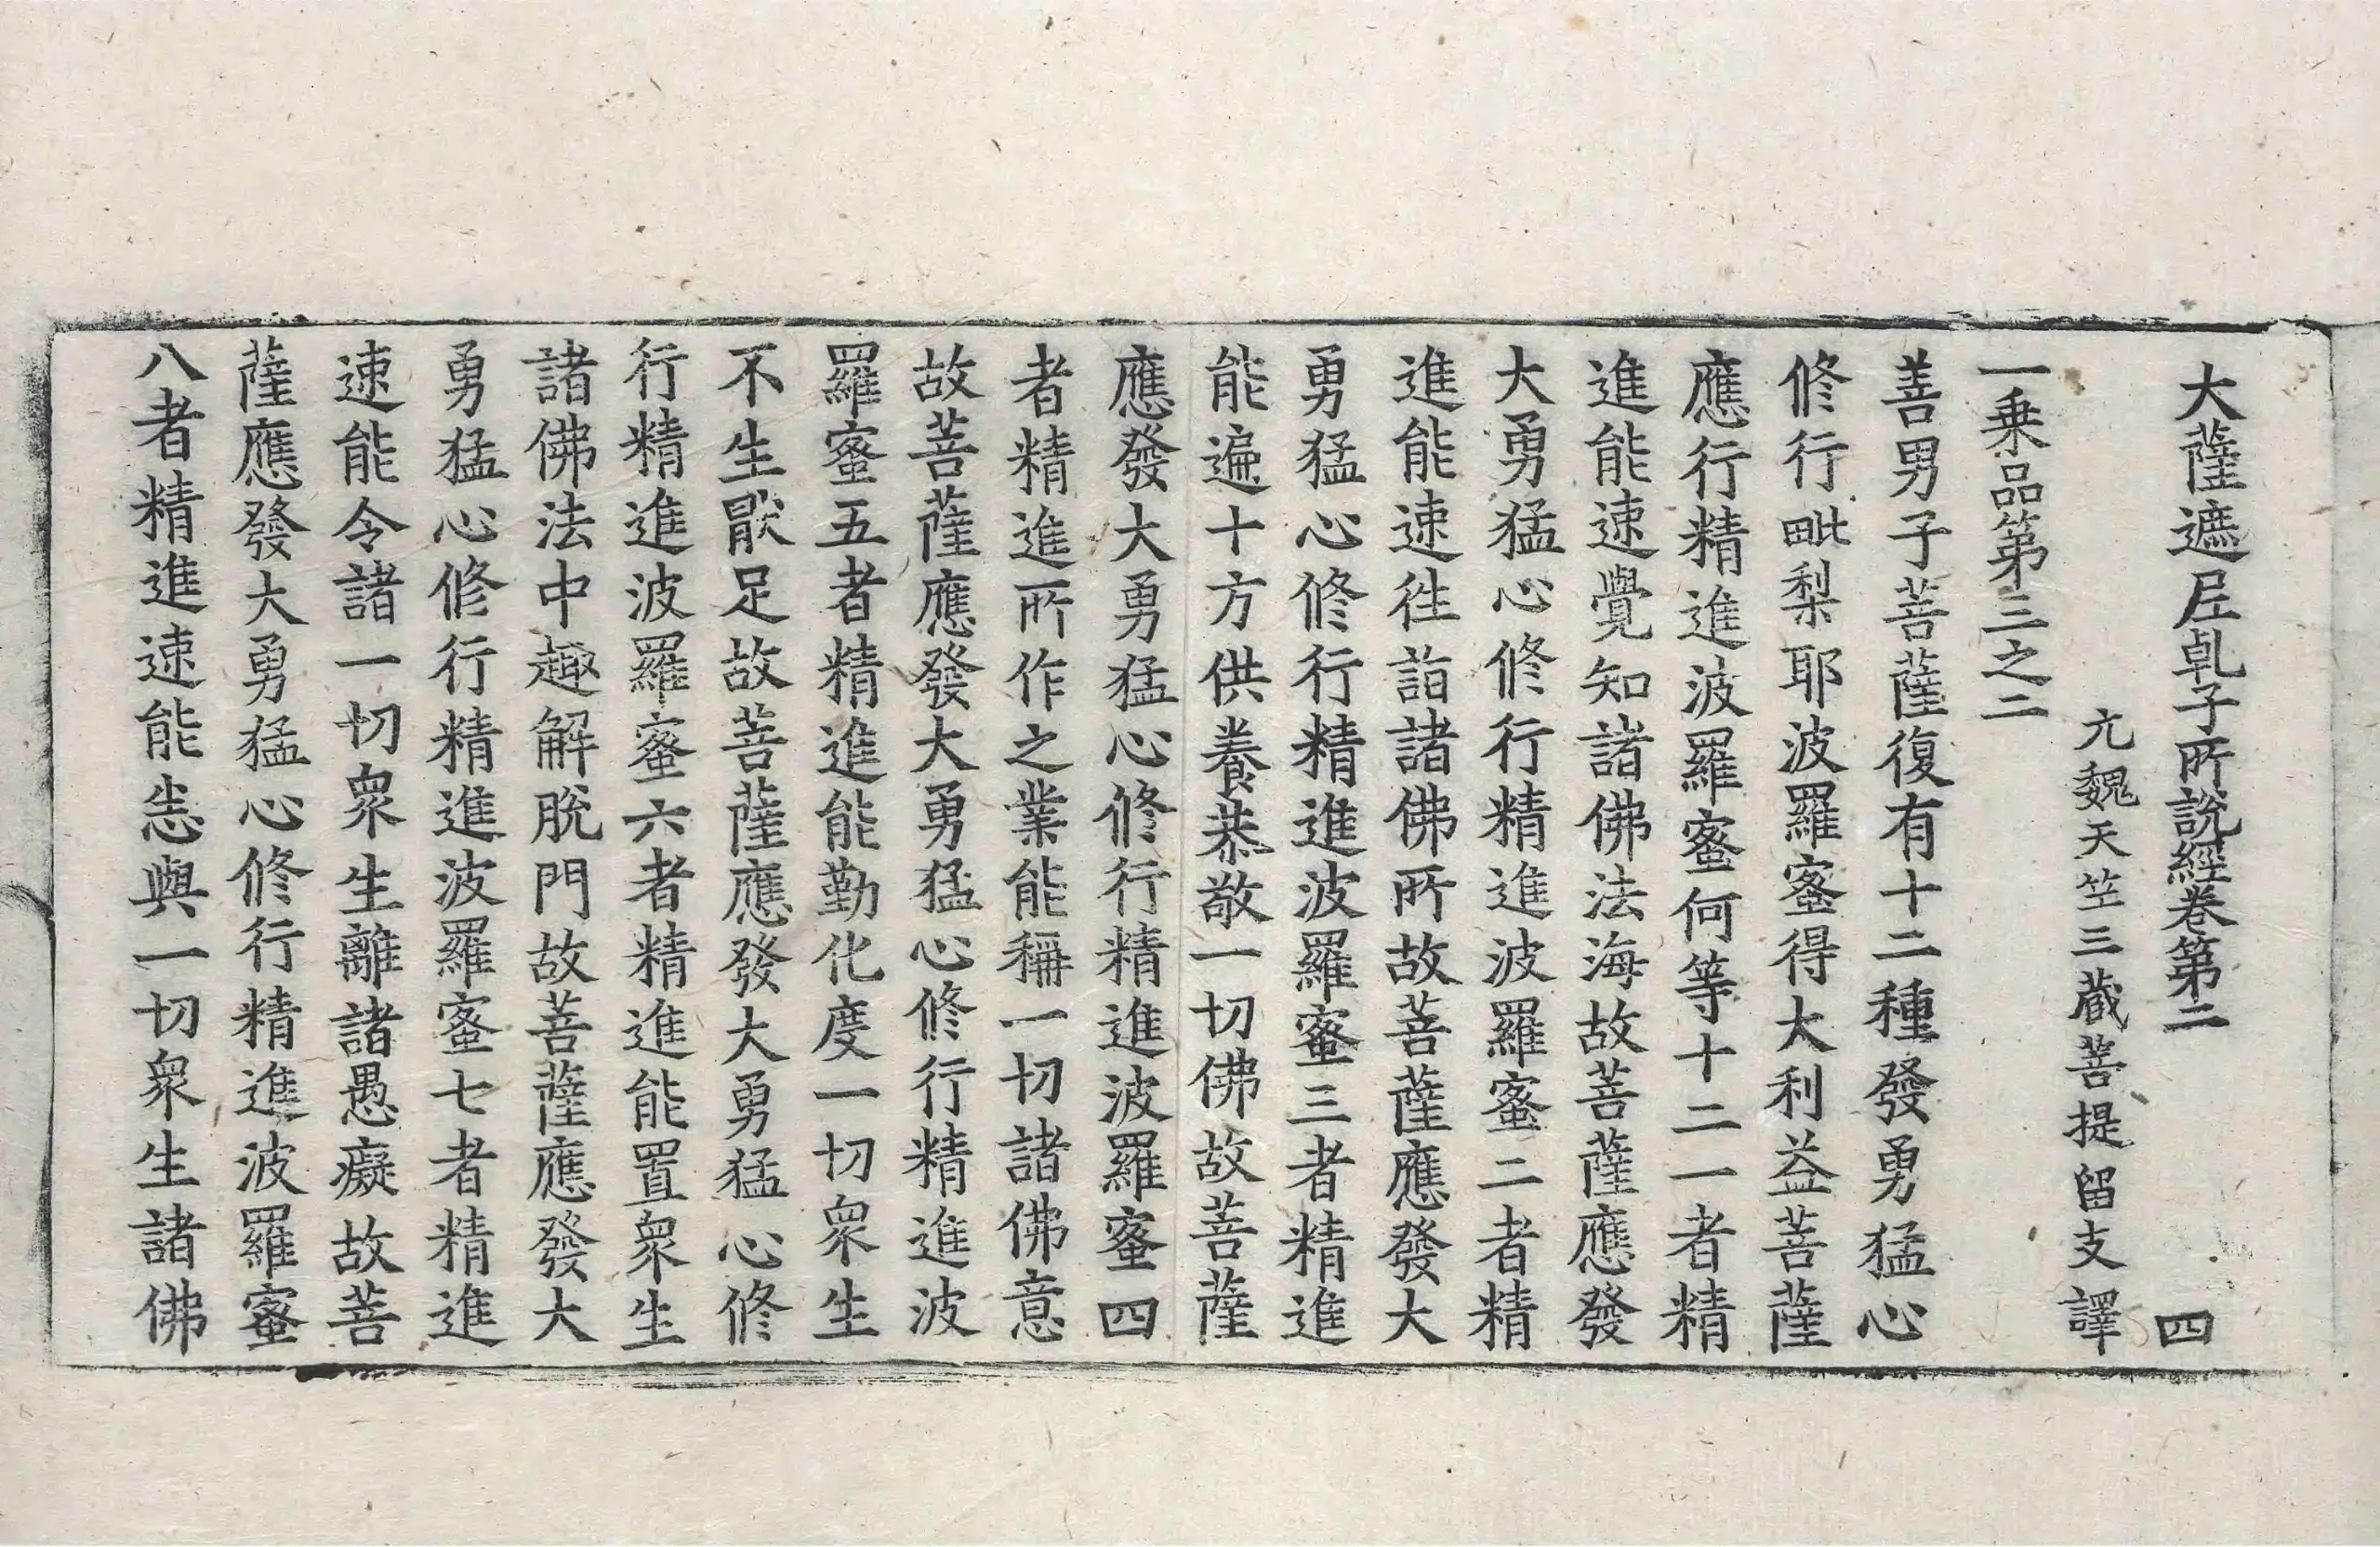 大薩遮尼乹子所說經卷第二 四
元魏天竺三藏菩提留支譯
一乗品第三之二
善男子菩薩復有十二種發勇猛心
修行毗梨耶波羅蜜得大利益菩薩
應行精進波羅蜜何等十二一者精
進能速覺知諸佛法海故菩薩應發
大勇猛心修行精進波羅蜜二者精
進能速徃詣諸佛所故菩薩應發大
勇猛心修行精進波羅蜜三者精進
能遍十方供養恭敬一切佛故菩薩
應發大勇猛心修行精進波羅蜜四
者精進所作之業能稱一切諸佛意
故菩薩應發大勇猛心修行精進波
羅蜜五者精進能勤化度一切衆生
不生猒足故菩薩應發大勇猛心修
行精進波羅蜜六者精進能置衆生
諸佛法中趣解脫門故菩薩應發大
勇猛心修行精進波羅蜜七者精進
速能令諸一切衆生離諸愚癡故菩
薩應發大勇猛心修行精進波羅蜜
八者精進速能恙與一切衆生諸佛